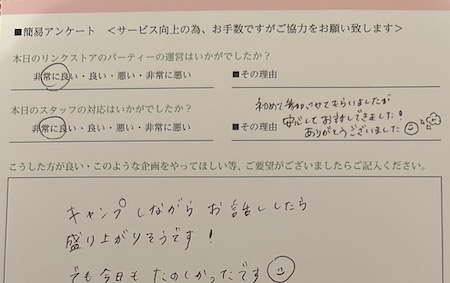 ■簡易アンケート ＜サービス向上の為、お手数ですがご協力をお願い致します＞
本日のリンクストアのパーティーの運営はいかがでしたか？
非常に良い・良い・悪い・非常に悪い ■その理由
本日のスタッフの対応はいかがでしたか？
非常に良い・良い・悪い・非常に悪い ■その理由
初めて参加させてもらいましたが
安心してお話しできました！
ありがとうございました
こうした方が良い・このような企画をやってほしい等、ご要望がございましたらご記入ください。
キャンプしながらお話ししたら
盛り上がりそうです！
でも今日もたのしかったです